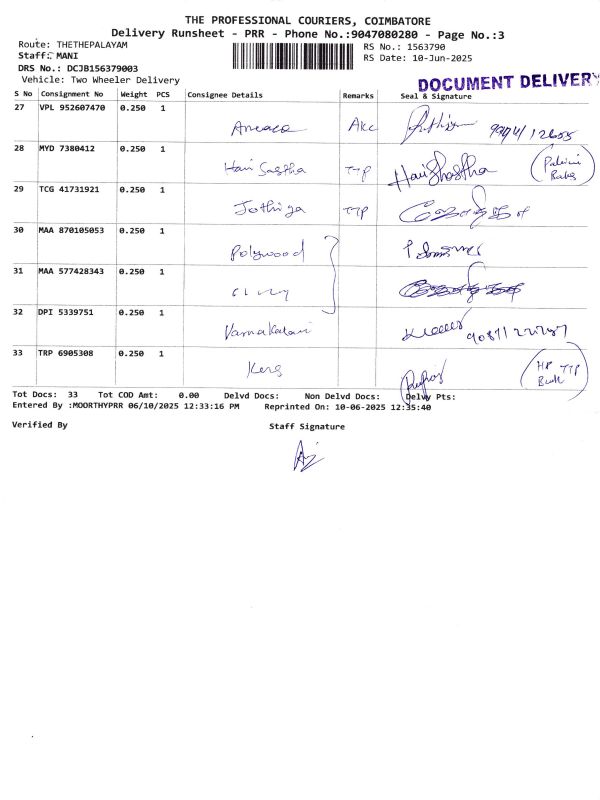 THE PROFESSIONAL COURIERS, COIMBATORE
Delivery Runsheet - PRR - Phone No.:9047080280 - Page No.:3
Route: THETHEPALAYAM
Staff: MANI
DRS No.: DCJB156379003
Vehicle: Two Wheeler Delivery
RS No.: 1563790
RS Date: 10-Jun-2025
DOCUMENT DELIVERY
S No Consignment No Weight PCS Consignee Details Remarks Seal & Signature
27 VPL 952607470 0.250 1
28 MYD 7380412 0.250 1 Hari Sastha TTP Harishastha
29 TCG 41731921 0.250 1 Jothiga TTP
30 MAA 870105053 0.250 1 Polywood
31 MAA 577428343 0.250 1
32 DPI 5339751 0.250 1
33 TRP 6905308 0.250 1 HP TTP
Tot Docs: 33 Tot COD Amt: 0.00 Delvd Docs: Non Delvd Docs: Delvy Pts:
Entered By :MOORTHYPRR 06/10/2025 12:33:16 PM Reprinted On: 10-06-2025 12:35:40
Verified By Staff Signature